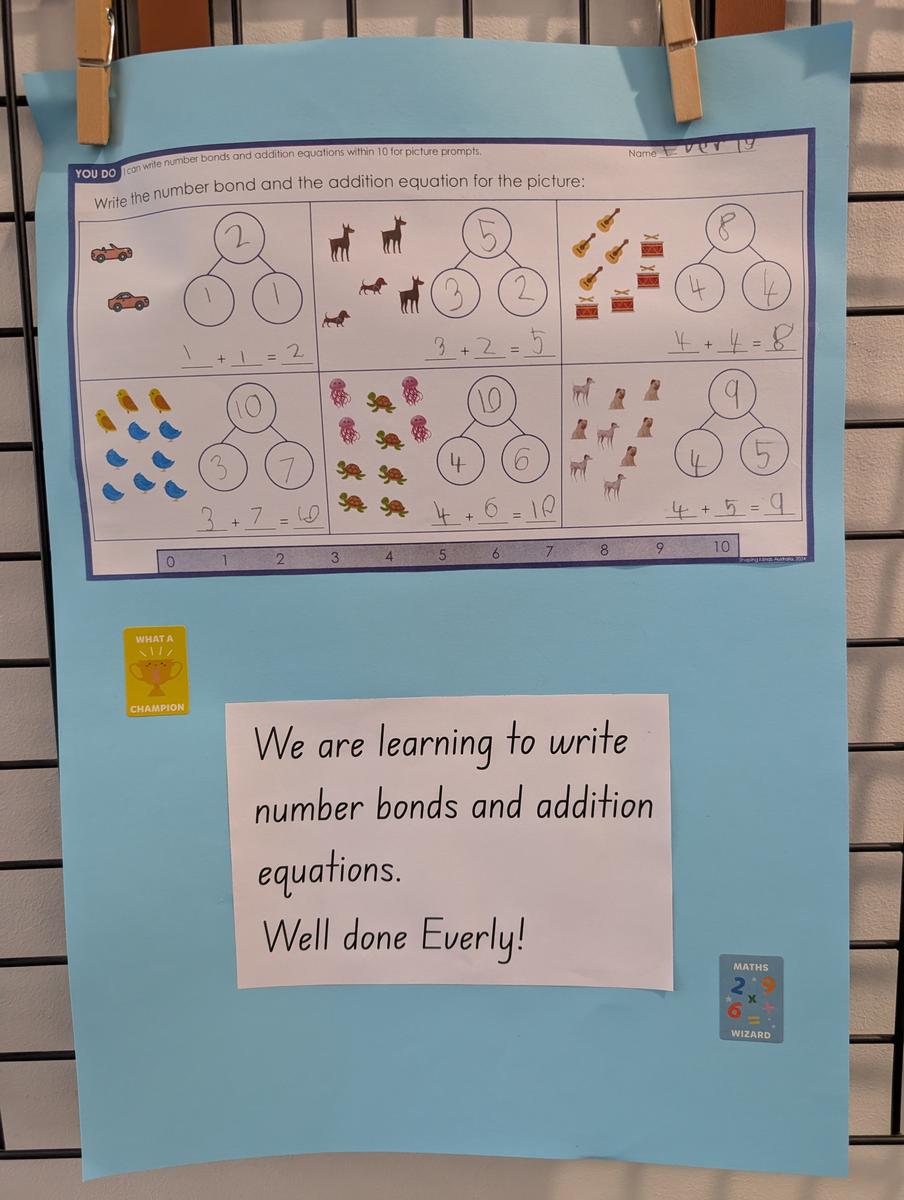 YOU DO I can write number bonds and addition equations within 10 for picture prompts. Name Everly
Write the number bond and the addition equation for the picture:
2
1 1
1 + 1 = 2
5
3 2
3 + 2 = 5
8
4 4
4 + 4 = 8
10
3 7
3 + 7 = 10
10
4 6
4 + 6 = 10
9
4 5
4 + 5 = 9
0 1 2 3 4 5 6 7 8 9 10
Shaping Minds Australia, 2024
WHAT A
CHAMPION
We are learning to write
number bonds and addition
equations.
Well done Everly!
MATHS
2 9
6 x +
=
WIZARD